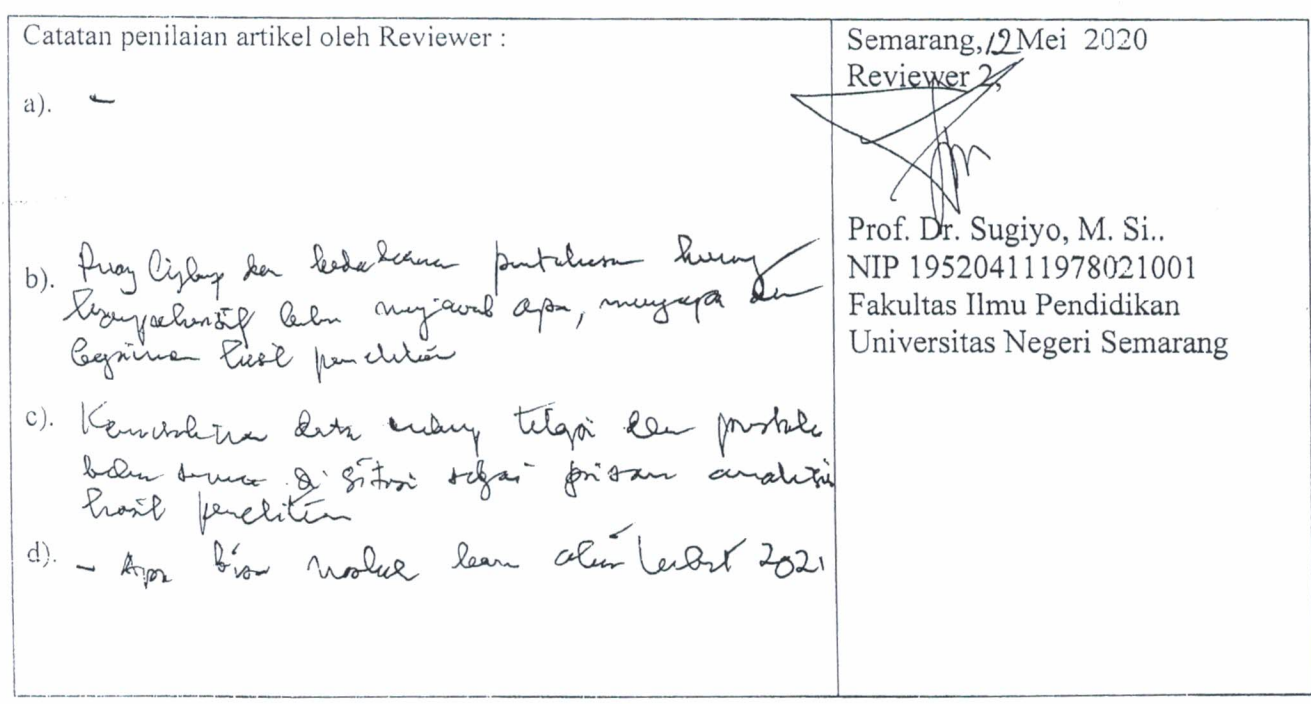 Catatan penilaian artikel oleh Reviewer :
a). -
b). Ruang lingkup dan kedalaman pembahasan kurang
komprehensif belum menjawab apa, mengapa dan
bagaimana hasil penelitian
c). Kemutakhiran data cukup dan pustaka
belum semua di sitasi sebagai pisau analisis
hasil penelitian
d). - Apa bisa terbit 2021
Semarang, 12 Mei 2020
Reviewer 2,
Prof. Dr. Sugiyo, M. Si..
NIP 195204111978021001
Fakultas Ilmu Pendidikan
Universitas Negeri Semarang